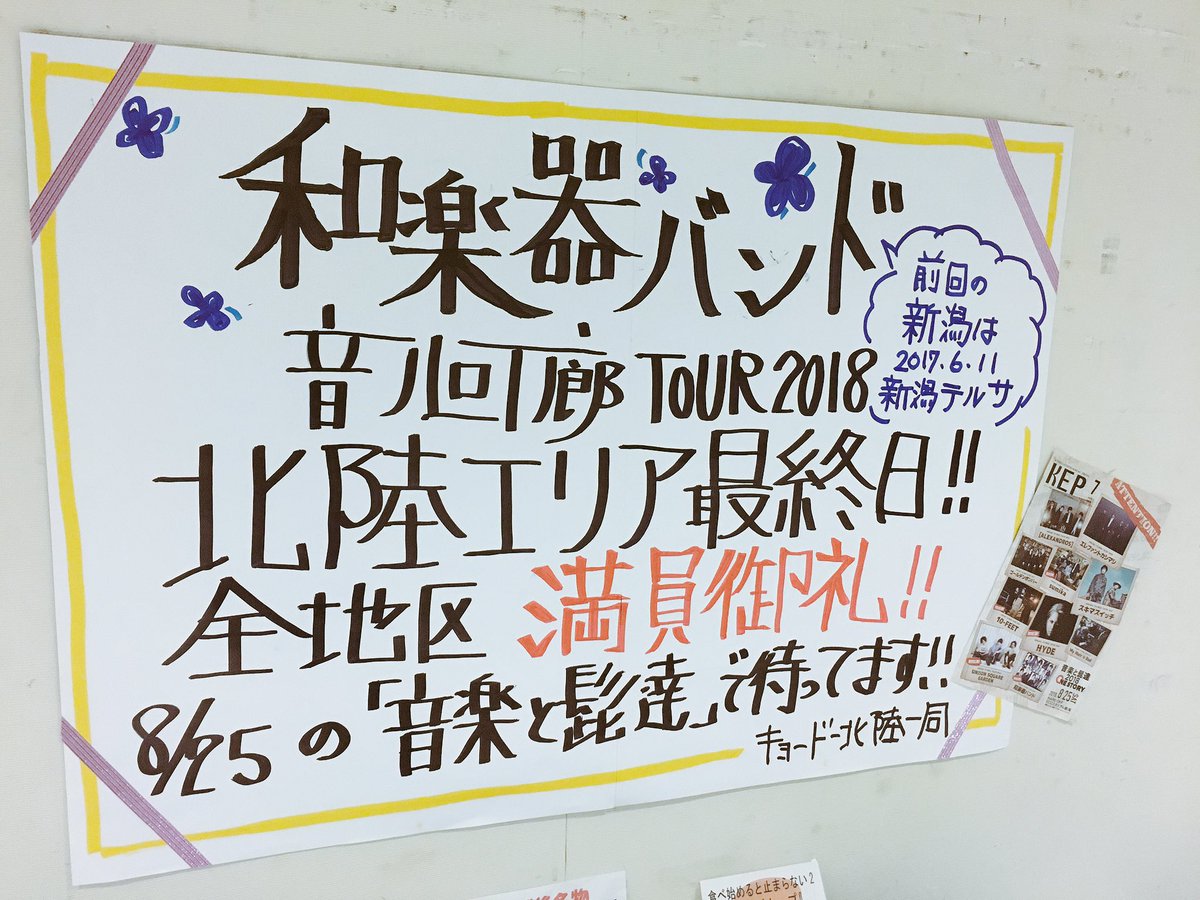 和楽器バンド
音ノ回廊 TOUR 2018
前回の
新潟は
2017.6.11
新潟テルサ
北陸エリア最終日!!
全地区 満員御礼!!
8/25の「音楽と髭達」で待ってます!!
キョードー北陸一同
KEP 7
ATTENTION!!
[ALEXANDROS]
エレファントカシマシ
ゴールデンボンバー
sumika
スキマスイッチ
10-FEET
HYDE
音楽と髭達
2018
8.25
食べ始めると止まらない